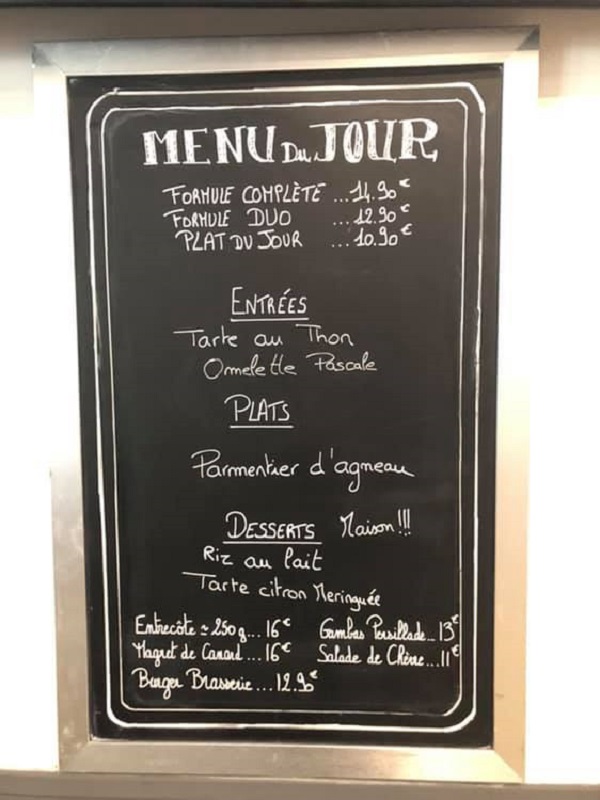 MENU Du JOUR
FORMULE COMPLÈTE ...14.90€
FORMULE DUO ...12.90€
PLAT DU JOUR ...10.90€
ENTRÉES
Tarte au Thon
Omelette Pascale
PLATS
Parmentier d'agneau
DESSERTS Maison!!!
Riz au lait
Tarte citron Meringuée
Entrecôte ≃ 250g... 16€ Gambas Persillade...13€
Magret de Canard ...16€ Salade de Chèvre...11€
Burger Brasserie ...12.90€